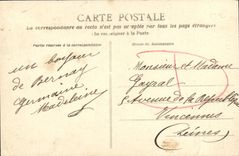 CARTE POSTALE
La correspondance au recto n'est pas acceptée par tous les pays étrangers
(Se renseigner à la Poste)
un bonjour
de Bernay
Germaine
Madeleine
Monsieur et Madame
5 Avenue de la République
Vincennes
(Seine)